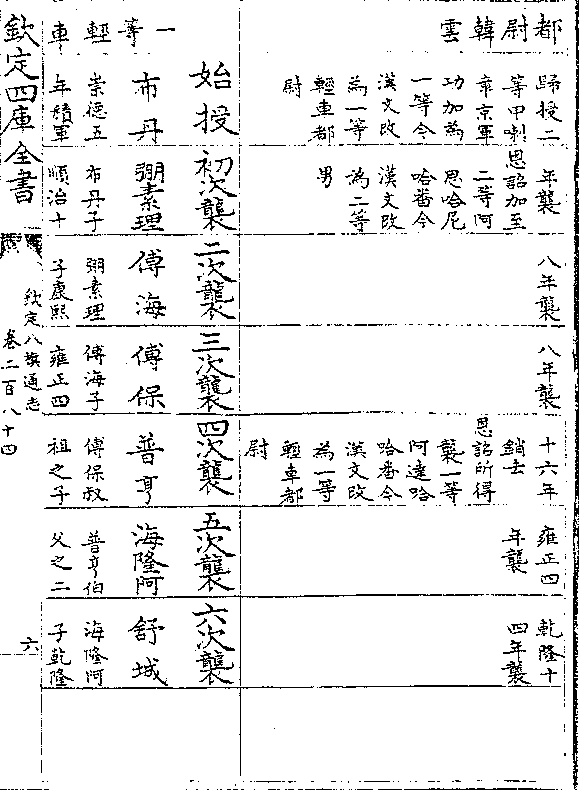 都尉韓雲
歸授二
等甲喇
章京軍
功加為
一等今
漢文改
為一等
輕車都
尉
年襲
恩詔加至
二等阿
思哈尼
哈番今
漢文改
為二等
男
八年襲
八年襲
十六年
銷去
恩詔所得
襲一等
阿達哈
哈番今
漢文改
為一等
輕車都
尉
雍正四
年襲
乾隆十
四年襲
一等輕車
始授
布丹
崇德五
年積軍
初次襲
弼素理
布丹子
順治十
二次襲
傅海
弼素理
子康熙
三次襲
傅保
傅海子
雍正四
四次襲
普亨
傅保叔
祖之子
五次襲
海隆阿
普亨伯
父之二
六次襲
舒城
海隆阿
子乾隆
欽定四庫全書
欽定八旗通志
卷二百八十四
六